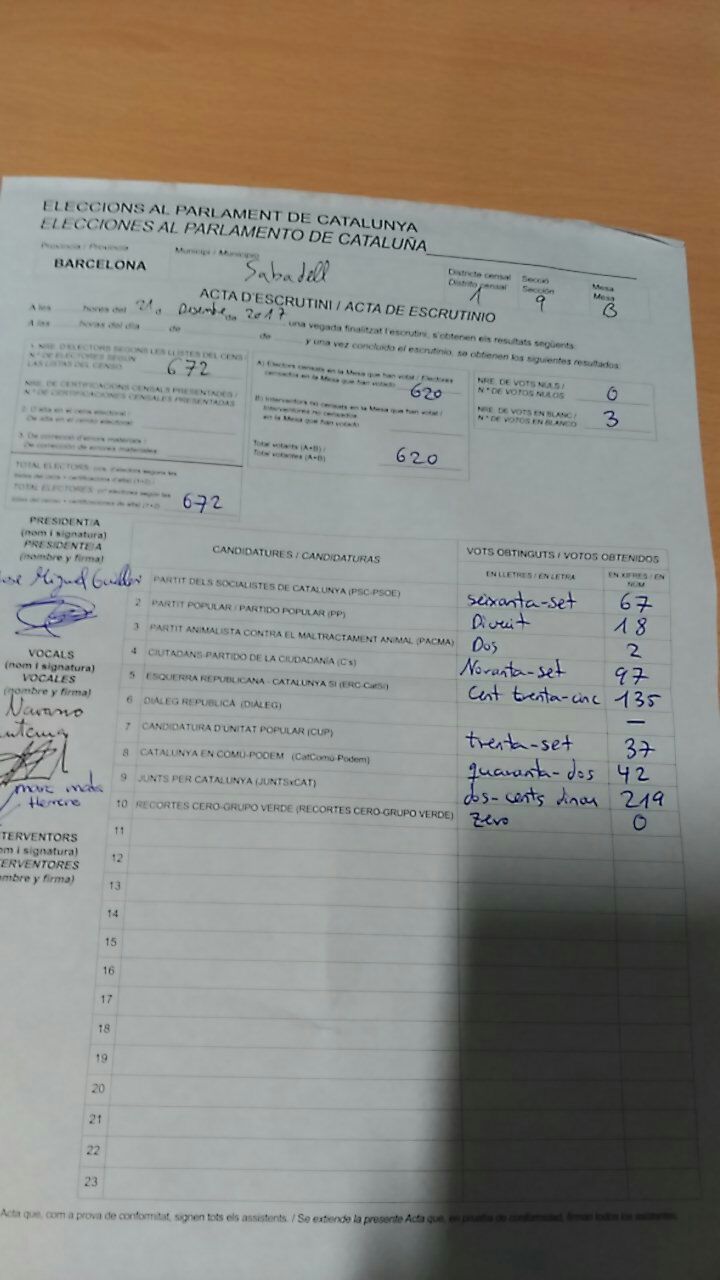 ELECCIONS AL PARLAMENT DE CATALUNYA
ELECCIONES AL PARLAMENTO DE CATALUÑA
Província / Provincia
Municipi / Municipio
Districte censal Secció Mesa
Distrito censal Sección Mesa
BARCELONA Sabadell 1 9 B
ACTA D'ESCRUTINI / ACTA DE ESCRUTINIO
A les hores del 21 d Desembre de 2017 una vegada finalitzat l'escrutini, s'obtenen els resultats següents:
A las horas del día de de y una vez concluido el escrutinio, se obtienen los siguientes resultados:
1. NRE. D'ELECTORS SEGONS LES LLISTES DEL CENS /
N.º DE ELECTORES SEGÚN
LAS LISTAS DEL CENSO
672
NRE. DE CERTIFICACIONS CENSALS PRESENTADES /
N.º DE CERTIFICACIONES CENSALES PRESENTADAS
2. D'alta en el cens electoral /
De alta en el censo electoral:
3. De correcció d'errors materials /
De corrección de errores materiales
TOTAL ELECTORS:
TOTAL ELECTORES:
672
A) Electors censats en la Mesa que han votat / Electores
censados en la Mesa que han votado
620
B) Interventors no censats en la Mesa que han votat /
Interventores no censados
en la Mesa que han votado
Total votants (A+B) /
Total votantes (A+B)
620
NRE. DE VOTS NULS /
N.º DE VOTOS NULOS
0
NRE. DE VOTS EN BLANC /
N.º DE VOTOS EN BLANCO
3
PRESIDENT/A
(nom i signatura)
PRESIDENTE/A
(nombre y firma)
Miguel
VOCALS
(nom i signatura)
VOCALES
(nombre y firma)
Navarro
marc mata
Herrero
(nombre y firma)
CANDIDATURES / CANDIDATURAS VOTS OBTINGUTS / VOTOS OBTENIDOS
EN LLETRES / EN LETRA EN XIFRES / EN NÚM
1 PARTIT DELS SOCIALISTES DE CATALUNYA (PSC-PSOE) seixanta-set 67
2 PARTIT POPULAR / PARTIDO POPULAR (PP) Divuit 18
3 PARTIT ANIMALISTA CONTRA EL MALTRACTAMENT ANIMAL (PACMA) Dos 2
4 CIUTADANS-PARTIDO DE LA CIUDADANÍA (C's) Noranta-set 97
5 ESQUERRA REPUBLICANA - CATALUNYA SÍ (ERC-CatSí) Cent trenta-cinc 135
6 DIÀLEG REPUBLICÀ (DIÀLEG) —
7 CANDIDATURA D'UNITAT POPULAR (CUP) trenta-set 37
8 CATALUNYA EN COMÚ-PODEM (CatComú-Podem) quaranta-dos 42
9 JUNTS PER CATALUNYA (JUNTSxCAT) dos-cents dinou 219
10 RECORTES CERO-GRUPO VERDE (RECORTES CERO-GRUPO VERDE) zero 0
11
12
13
14
15
16
17
18
19
20
21
22
23
Acta que, com a prova de conformitat, signen tots els assistents. / Se extiende la presente Acta que, en prueba de conformidad, firman todos los asistentes.